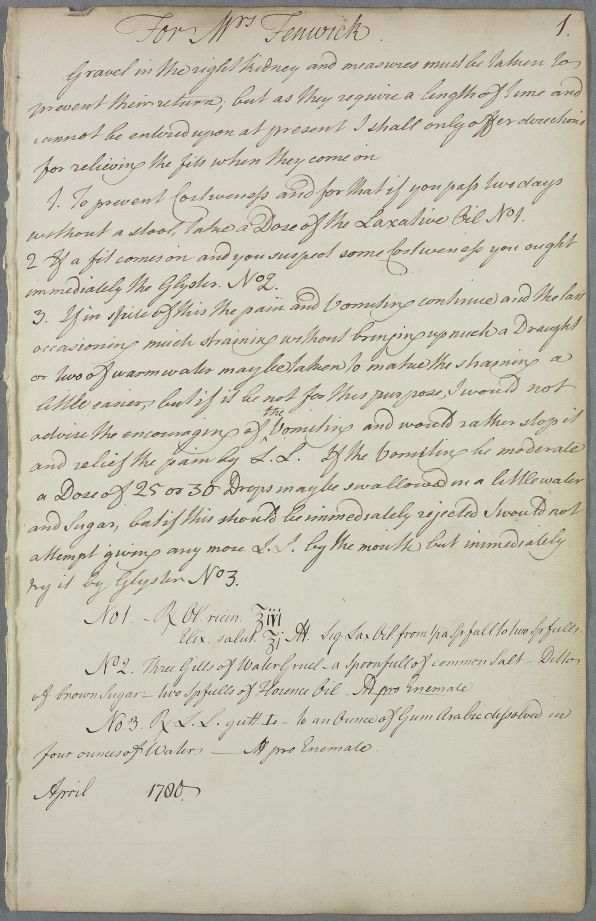 For Mrs Fenwick. 1.
Gravel in the right kidney and measures must be taken to
prevent their return; but as they require a length of time and
cannot be entered upon at present I shall only offer directions
for relieving the fits when they come on
1. To prevent Costiveness and for that if you pass two days
without a stool, take a Dose of the Laxative Oil No1.
2 If a fit comes on and you suspect some Costiveness you ought
immediately the Glyster. No2.
3. If in spite of this the pain and Vomiting continue and the last
occasioning much straining without bringing up much a Draught
or two of warm water may be taken to make the straining a
little easier, but if it be not for this purpose, I would not
advise the encouraging of the Vomiting and would rather stop it
and relief the pain by L.L. If the Vomiting be moderate
a Dose of 25 or 30 Drops may be swallowed in a little water
and Sugar, but if this should be immediately rejected I would not
attempt giving any more L.L. by the mouth but immediately
try it by Glyster No3.
No1. - ℞ Ol. ricin. ʒiii
Elix. salut. ʒj M. Sig Lax Oil from ha Spfull to two Spfulls
No2. Three Gills of Water Gruel - a spoonfull of common Salt - Ditto
of brown Sugar - two Spfulls of Florence Oil - M pro Enemate
No.3. ℞ L.L. gutt. L - to an Ounce of Gum Arabic dissolved in
four ounces of Water, - M pro Enemate.
April 1780.